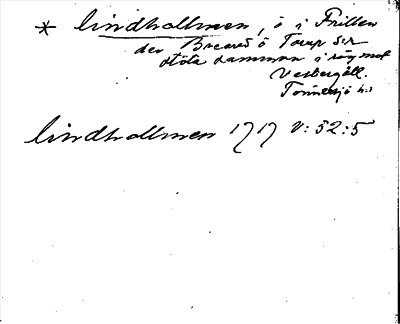 * Lindholmen, ö i Frillen
der Breared o Torup s:r
stöta samman i röq mot
Vesbergåll.
Tönnersjö h:d
Lindholmen 1717 V: 52:5